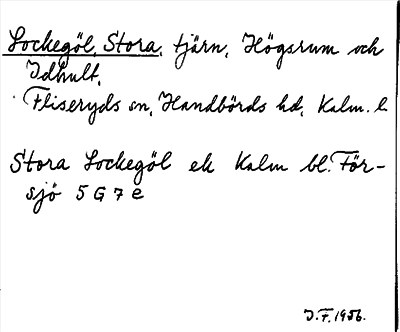 Lockegöl, Stora, tjärn, Högsrum och
Idhult,
Fliseryds sn, Handbörds hd, Kalm. l.
Stora Lockegöl ek Kalm bl. För-
sjö 5 G 7 e
I.F. 1956.